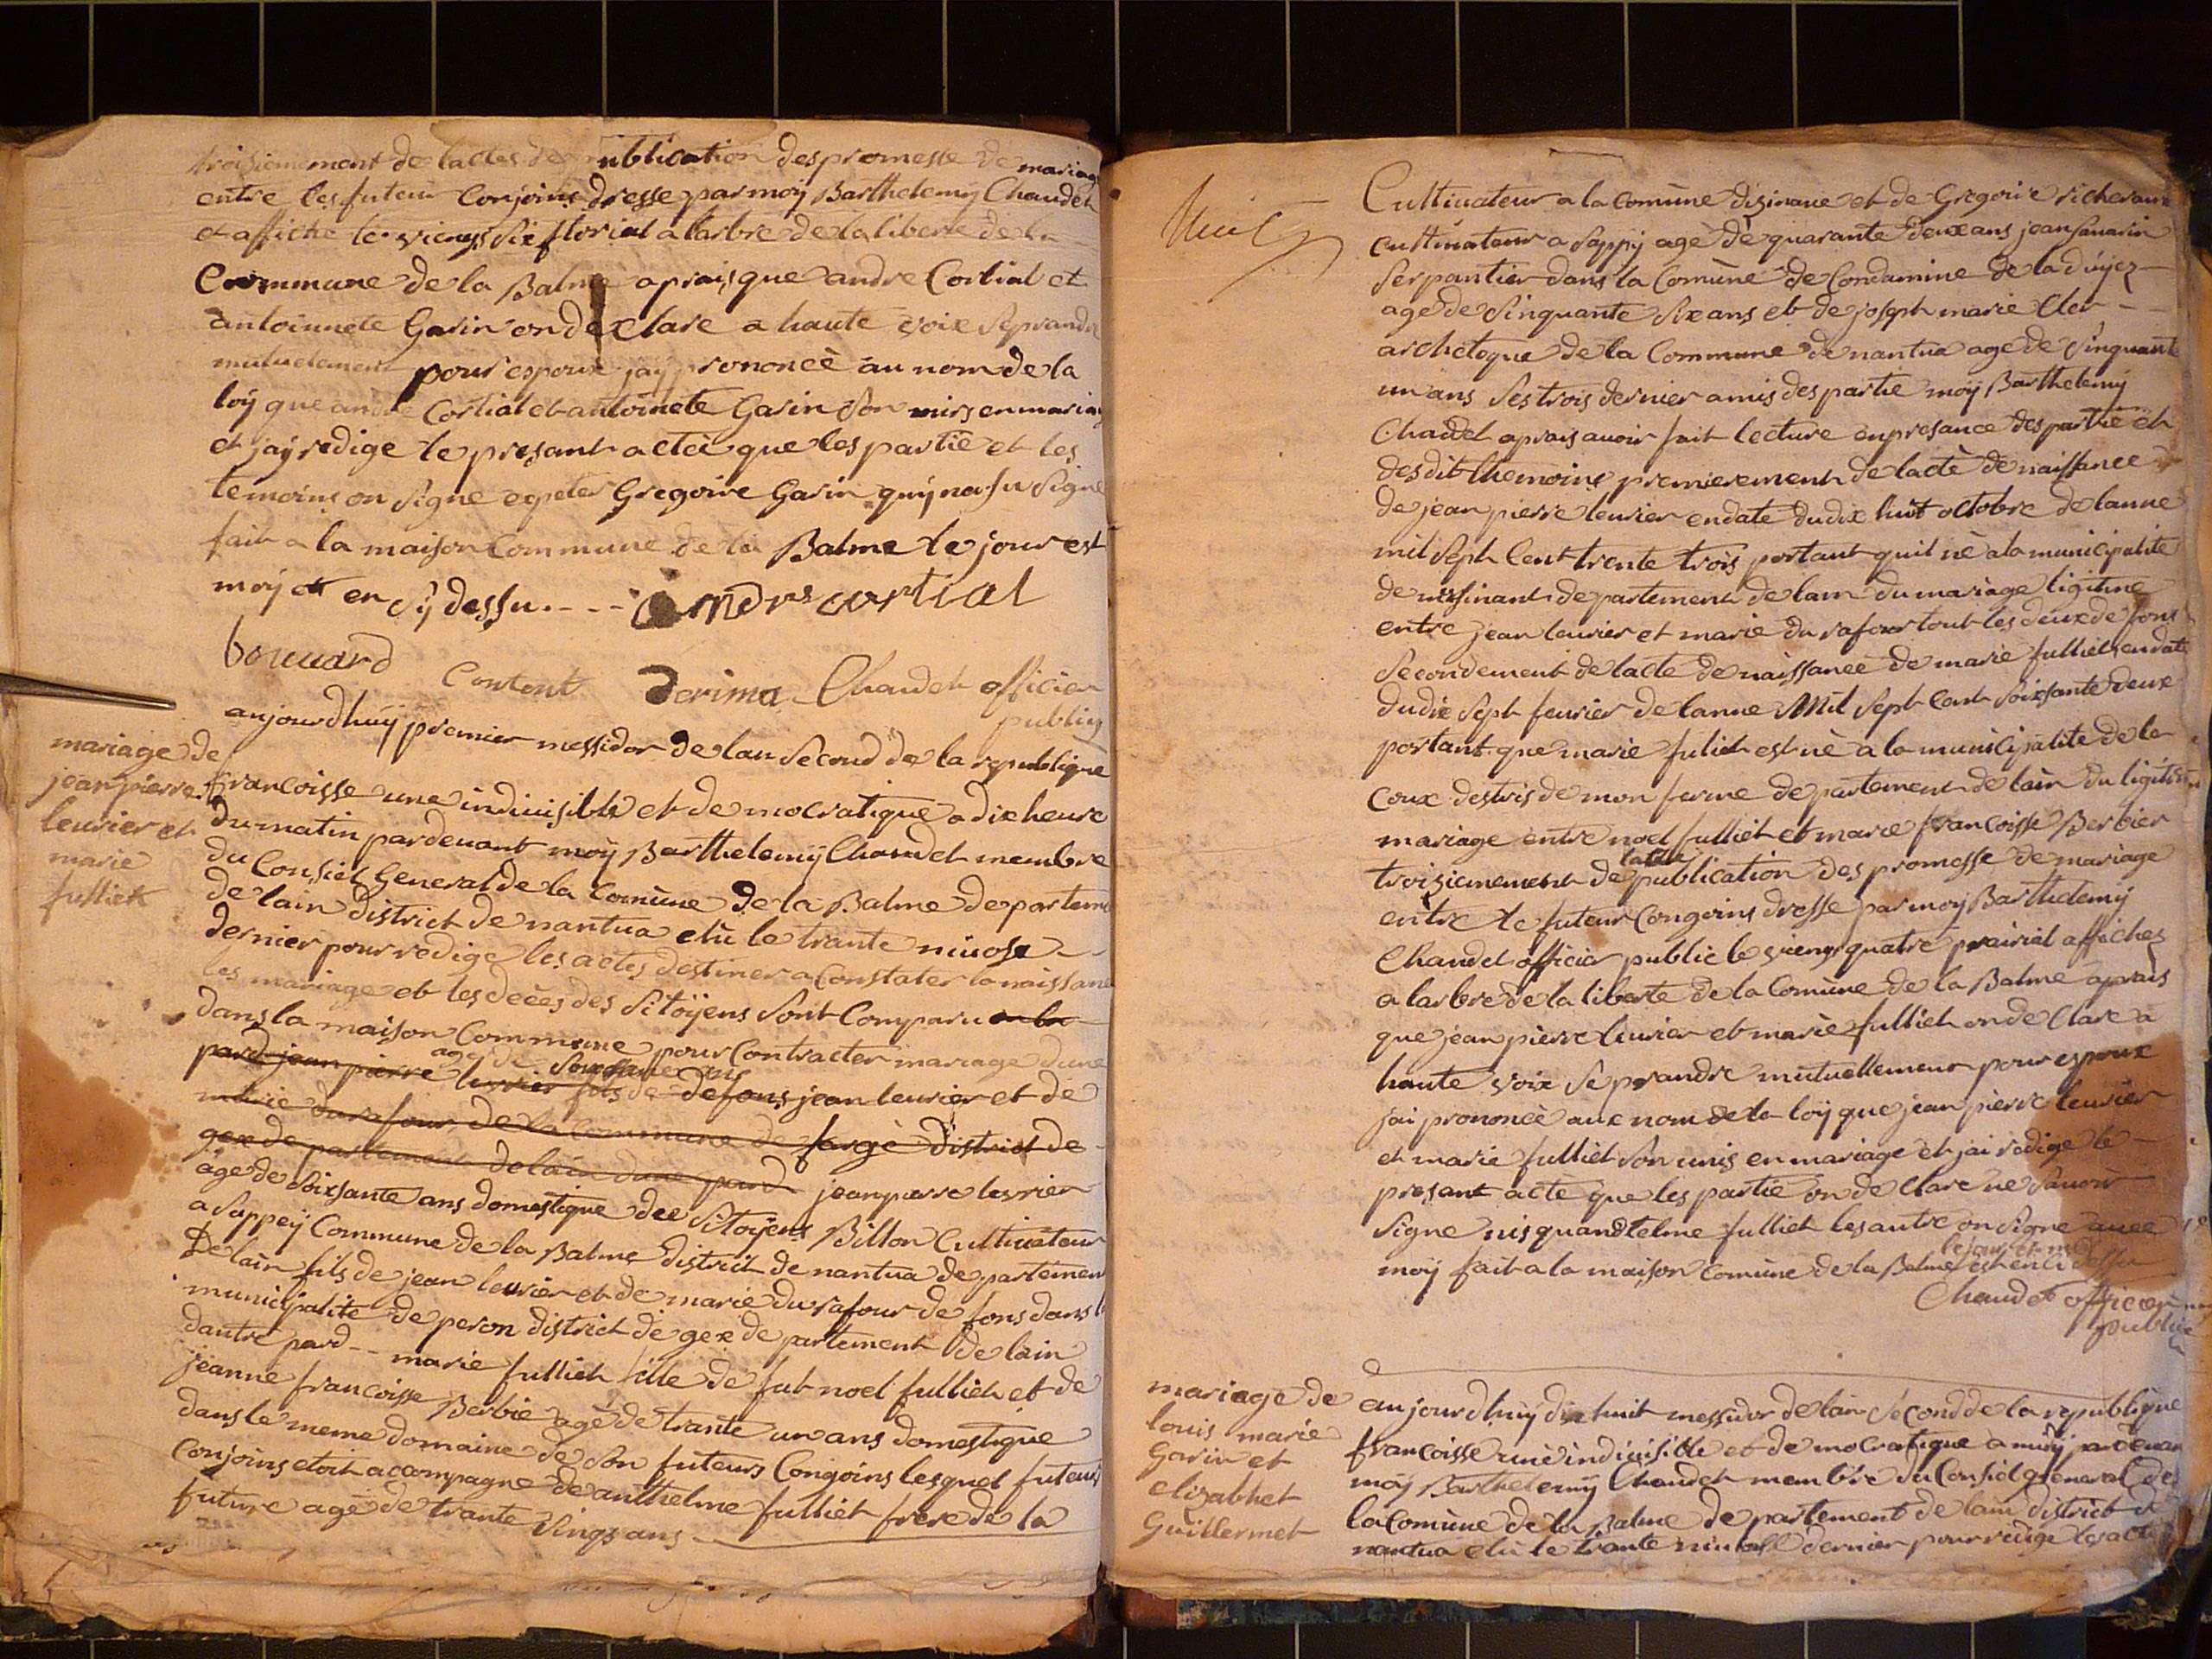 troisiemement de lactes de publication des promesse de mariage
entre les futeur Conjoins dresse par moÿ Barthelemÿ Chaudet
et affiche le viengs Six florial a larbre de la liberte de la
Commune de la Balme aprais que andre Cortial et
antoinnete Garin on dexclare a haute voix Seprandre
mutuelement pour espoux jaÿ prononcè au nom de la
loÿ que andre Cortial et antoinete Garin Son unis en mariag
et jaÿ redige le presant actei que les partie et les
temoins on Signe expeter Gregoire Garin quÿ na su Signe
fait a la maison Commune de la Balme le jour est
moÿ en Sÿ dessu - - - andrs cortial
bouuard Contont Derima Chaudet officier
publiq
mariage de
jean pierre
leurier et
marie
fulliet
aujourdhuÿ premier messidor de lan Second de la republique
francoisse une indiuisible et de mocratique a dix heure
du matin pardeuant moÿ Barthelemÿ Chaudet membre
du Consiel General de la Comùne de la Balme departeme
de lain district de nantua elù le trante niuose -
dernier pour redige les actes destiner a Constater la naissance
les mariage et les dèces des Sitoÿens Sont Comparu en la
dans la maison Commune pour Contracter mariage dune
age de Soixsante ans
pard jean pierre leurier fils de defons jean leurier et de
marie durafour de la Commune de fargè district de
gex de partement de lain dune pard jean pierre leurier
age de Soixsante ans domestique dee Sitoÿens Billon Cultiuateur
a Sappeÿ Commune de la Balme district de nantua departemen
De lain fils de jean leurier et de marie durafour de fons dans la
municipalite de peron district de gex de partement de lain
dautre pard - - marie fulliet fille de fut noel fulliet et de
jeanne francoisse Berbie agè de trante un ans domestique
dans le meme domaine de Son futeurs Congoins lesquel futeurs
Conjoins etoit acompagne de anthelme fulliet frere de la
future agè de trante Sings ans
Cultiuateur a la Comùne dizinaue et de Gregoire richeraux
cultiuateur a Sappÿ agè de quarante deux ans jean Sauarin
Serpantier dans la Comùne de Condamine de la duÿez
age de Sinquante Six ans et de joseph marie Clet - -
archetoque de la Commune de nantua age de Sinquante
un ans Ses trois dernier amis des partie moÿ Barthelemÿ
Chaudet aprais auoir fait lecture en presance des partie et
des dit themoins premierement de lactè de naissance
de jean pierre leurier en date du dix huit octobre de lanne
mil Seph Cent trente trois portant quil nè a la municipalite
de departement de lain du mariage ligitime
entre jean leurier et marie du rafour tout les deux de fons
Secondement de lacte de naissance de marie fulliet en date
du dix Seph feurier de lanne Mil Seph Cent Soixsante deux
portant que marie fuliet est nè a la municipalite de la
Coux destris de mon ferme departement de lain du ligitime
mariage entre noel fulliet et marie francoisse Berbier
lacte
troiziemement de publication des promesse de mariage
entre le futeur Congoins dresse par moÿ Barthelemÿ
Chaudet officier public le viengs quatre prairiel affiches
a larbre de la liberte de la Comùne de la Balme aprais
que jean pierre leurier et marie fulliet on de Clare a
haute voix Seprandre mutuellemen pour espoux
jai prononcè aux nom de la loÿ que jean pierre leurier
et marie fulliet Son unis en mariage et jai redige le -
presant acte que les partie on de Clare ne Sauoir
Signe nis quandtelme fulliet les autre on Signe auee
le jour et mois
moÿ fait a la maison Comùne de la Balme est en Ci dessu
Chaudet officier
publiq
mariage de
louis marie
Garin et
elizabhet
Guillermet
aujourdhuÿ dix huit messidor de lan Second de la republique
francoisse unè indiuisible et de mocratique a midÿ pardeuan
moÿ Barthelemÿ Chaudet membre du Consiel general de
la Comùne de la Balme departement de lain district de
nantua elù le trante niuose dernier pour redige les acte